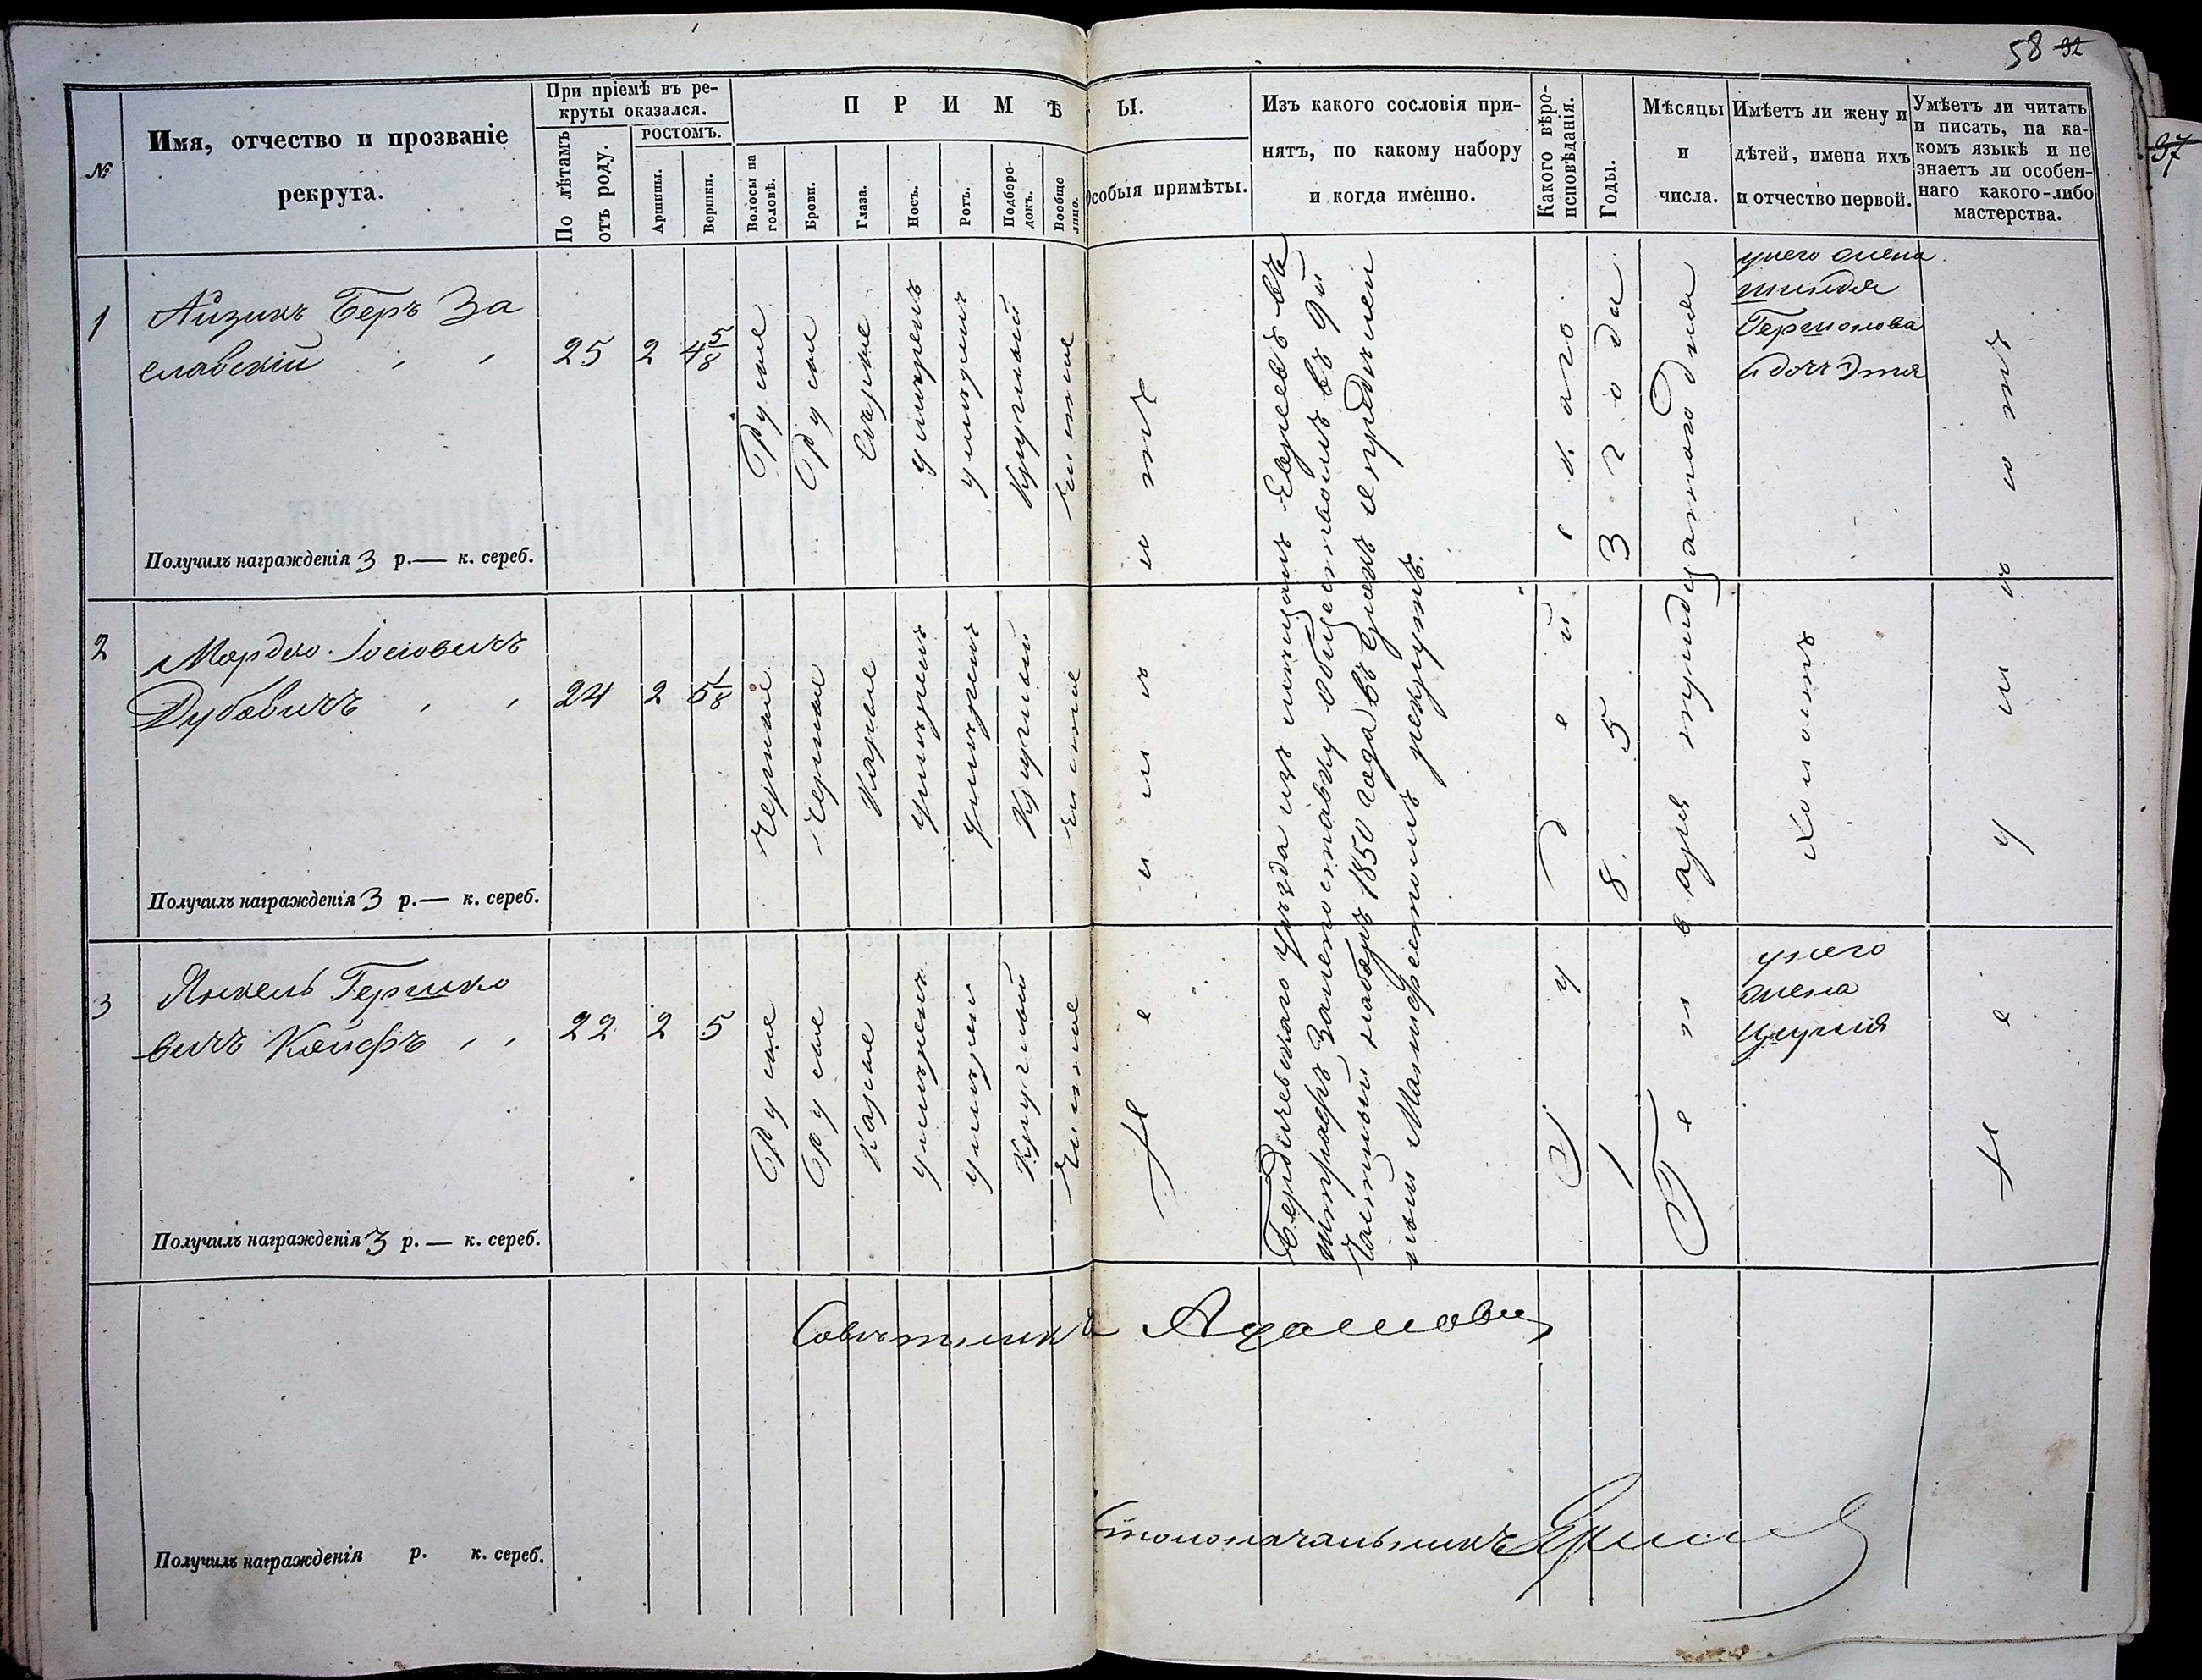 58 32
37
№
Имя, отчество и прозваніе
рекрута.
При пріемѣ въ ре-
круты оказался.
По лѣтамъ
отъ роду.
РОСТОМЪ.
Аршины.
Вершки.
ПРИМѢ Ы.
Волосы на
головѣ.
Брови.
Глаза.
Носъ.
Ротъ.
Подборо-
докъ.
Вообще
лицо.
собыя примѣты.
Изъ какого сословія при-
нятъ, по какому набору
и когда именно.
Какого вѣро-
исповѣданія.
Годы.
Мѣсяцы
и
числа.
Имѣетъ ли жену и
дѣтей, имена ихъ
и отчество первой.
Умѣетъ ли читать
и писать, на ка-
комъ языкѣ и не
знаетъ ли особен-
наго какого-либо
мастерства.
1
Айзикъ Беръ За
славскій
25 2 4 5/8
Русые
Русые
Сѣрые
умѣренъ
умѣренъ
Круглый
чистое
у него жена
Гершонова
и дочь Этя
Получилъ награжденія 3 р. — к. сереб.
2
Мордко Іосіовичъ
Дубовичъ
24 2 5 1/8
Черные
Черные
Карые
умѣренъ
умѣренъ
Круглый
чистое
Холостъ
Получилъ награжденія 3 р. — к. сереб.
3
Янкель Гершко
вичъ
22 2 5
Русые
Русые
Карые
умѣренъ
умѣрен
Круглый
чистое
у него
жена
Получилъ награжденія 3 р. — к. сереб.
Не имѣетъ
Бердичевскаго уѣзда изъ мѣщанъ Евреевъ въ
штрафъ за недоставку обществомъ въ 9й
частный наборъ 1850 года въ
рекрутъ.
Іудейскаго
1853 года
Генваря тридцатаго дня
Не умѣетъ
Совѣтникъ
Столоначальникъ
Получилъ награжденія р. к. сереб.